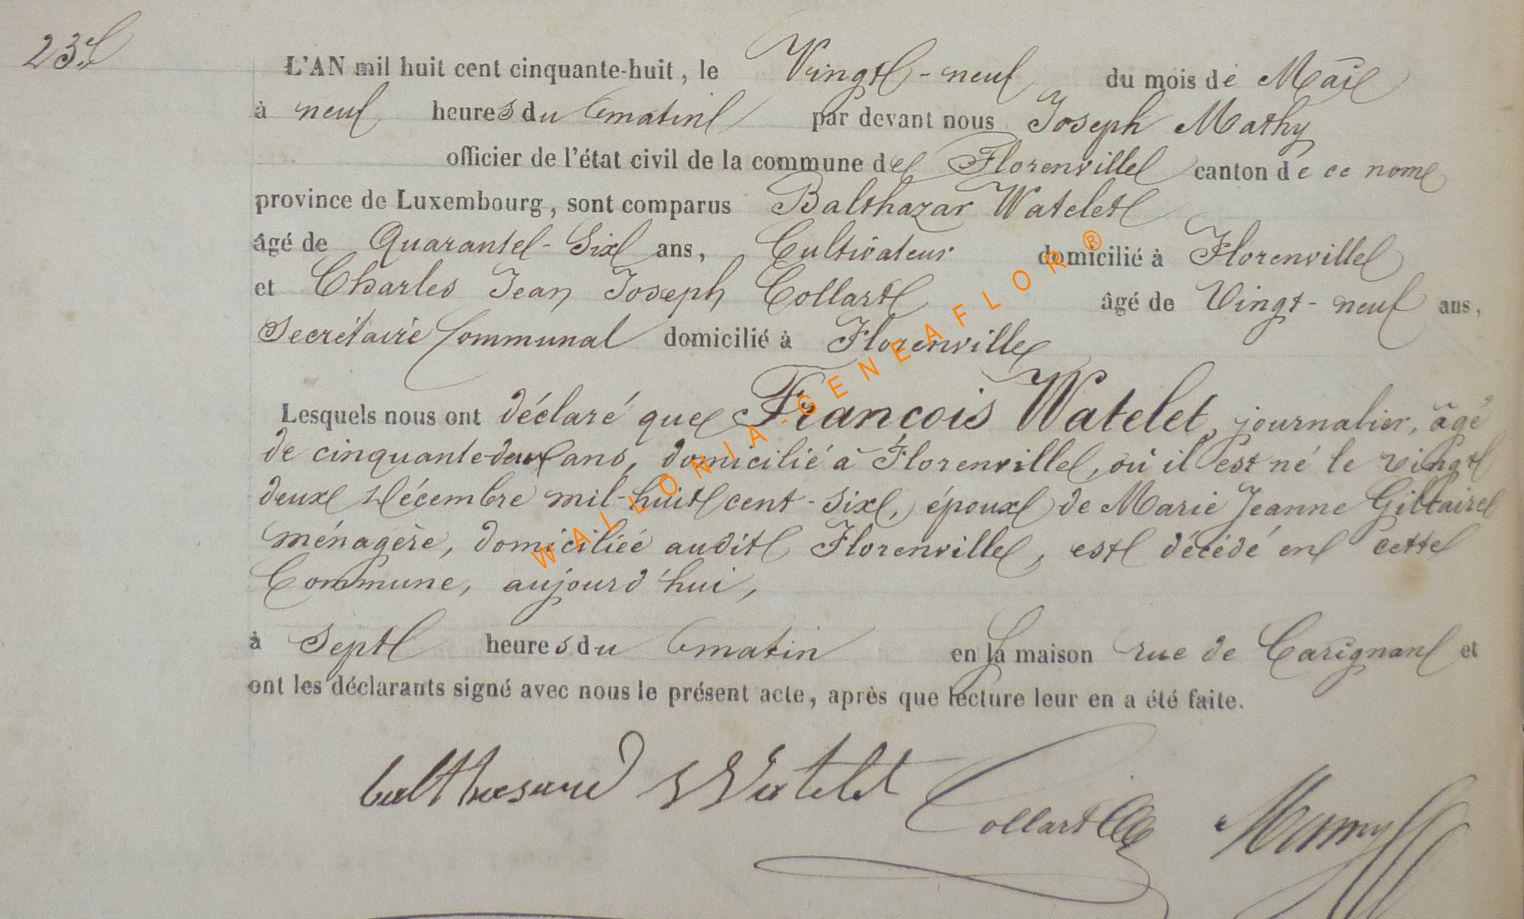 23e
L'AN mil huit cent cinquante-huit, le Vingt-neuf du mois de Mai
à neuf heures du matin par devant nous Joseph Mathy
officier de l'état civil de la commune de Florenville canton de ce nom
province de Luxembourg, sont comparus Balthazar Watelet
âgé de Quarante-Six ans, Cultivateur domicilié à Florenville
et Charles Jean Joseph Collart âgé de Vingt-neuf ans,
Secrétaire Communal domicilié à Florenville
Lesquels nous ont déclaré que François Watelet, journalier, âgé
de cinquante-deux ans, domicilié à Florenville, où il est né le vingt
deux Décembre mil-huit cent-six, époux de Marie Jeanne Giltaire
ménagère, domiciliée audit Florenville, est décédé en cette
Commune, aujourd'hui,
à Sept heures du matin en la maison rue de Carignan et
ont les déclarants signé avec nous le présent acte, après que lecture leur en a été faite.
Watelet Collart
WALLONIA-GENEAFLOR®